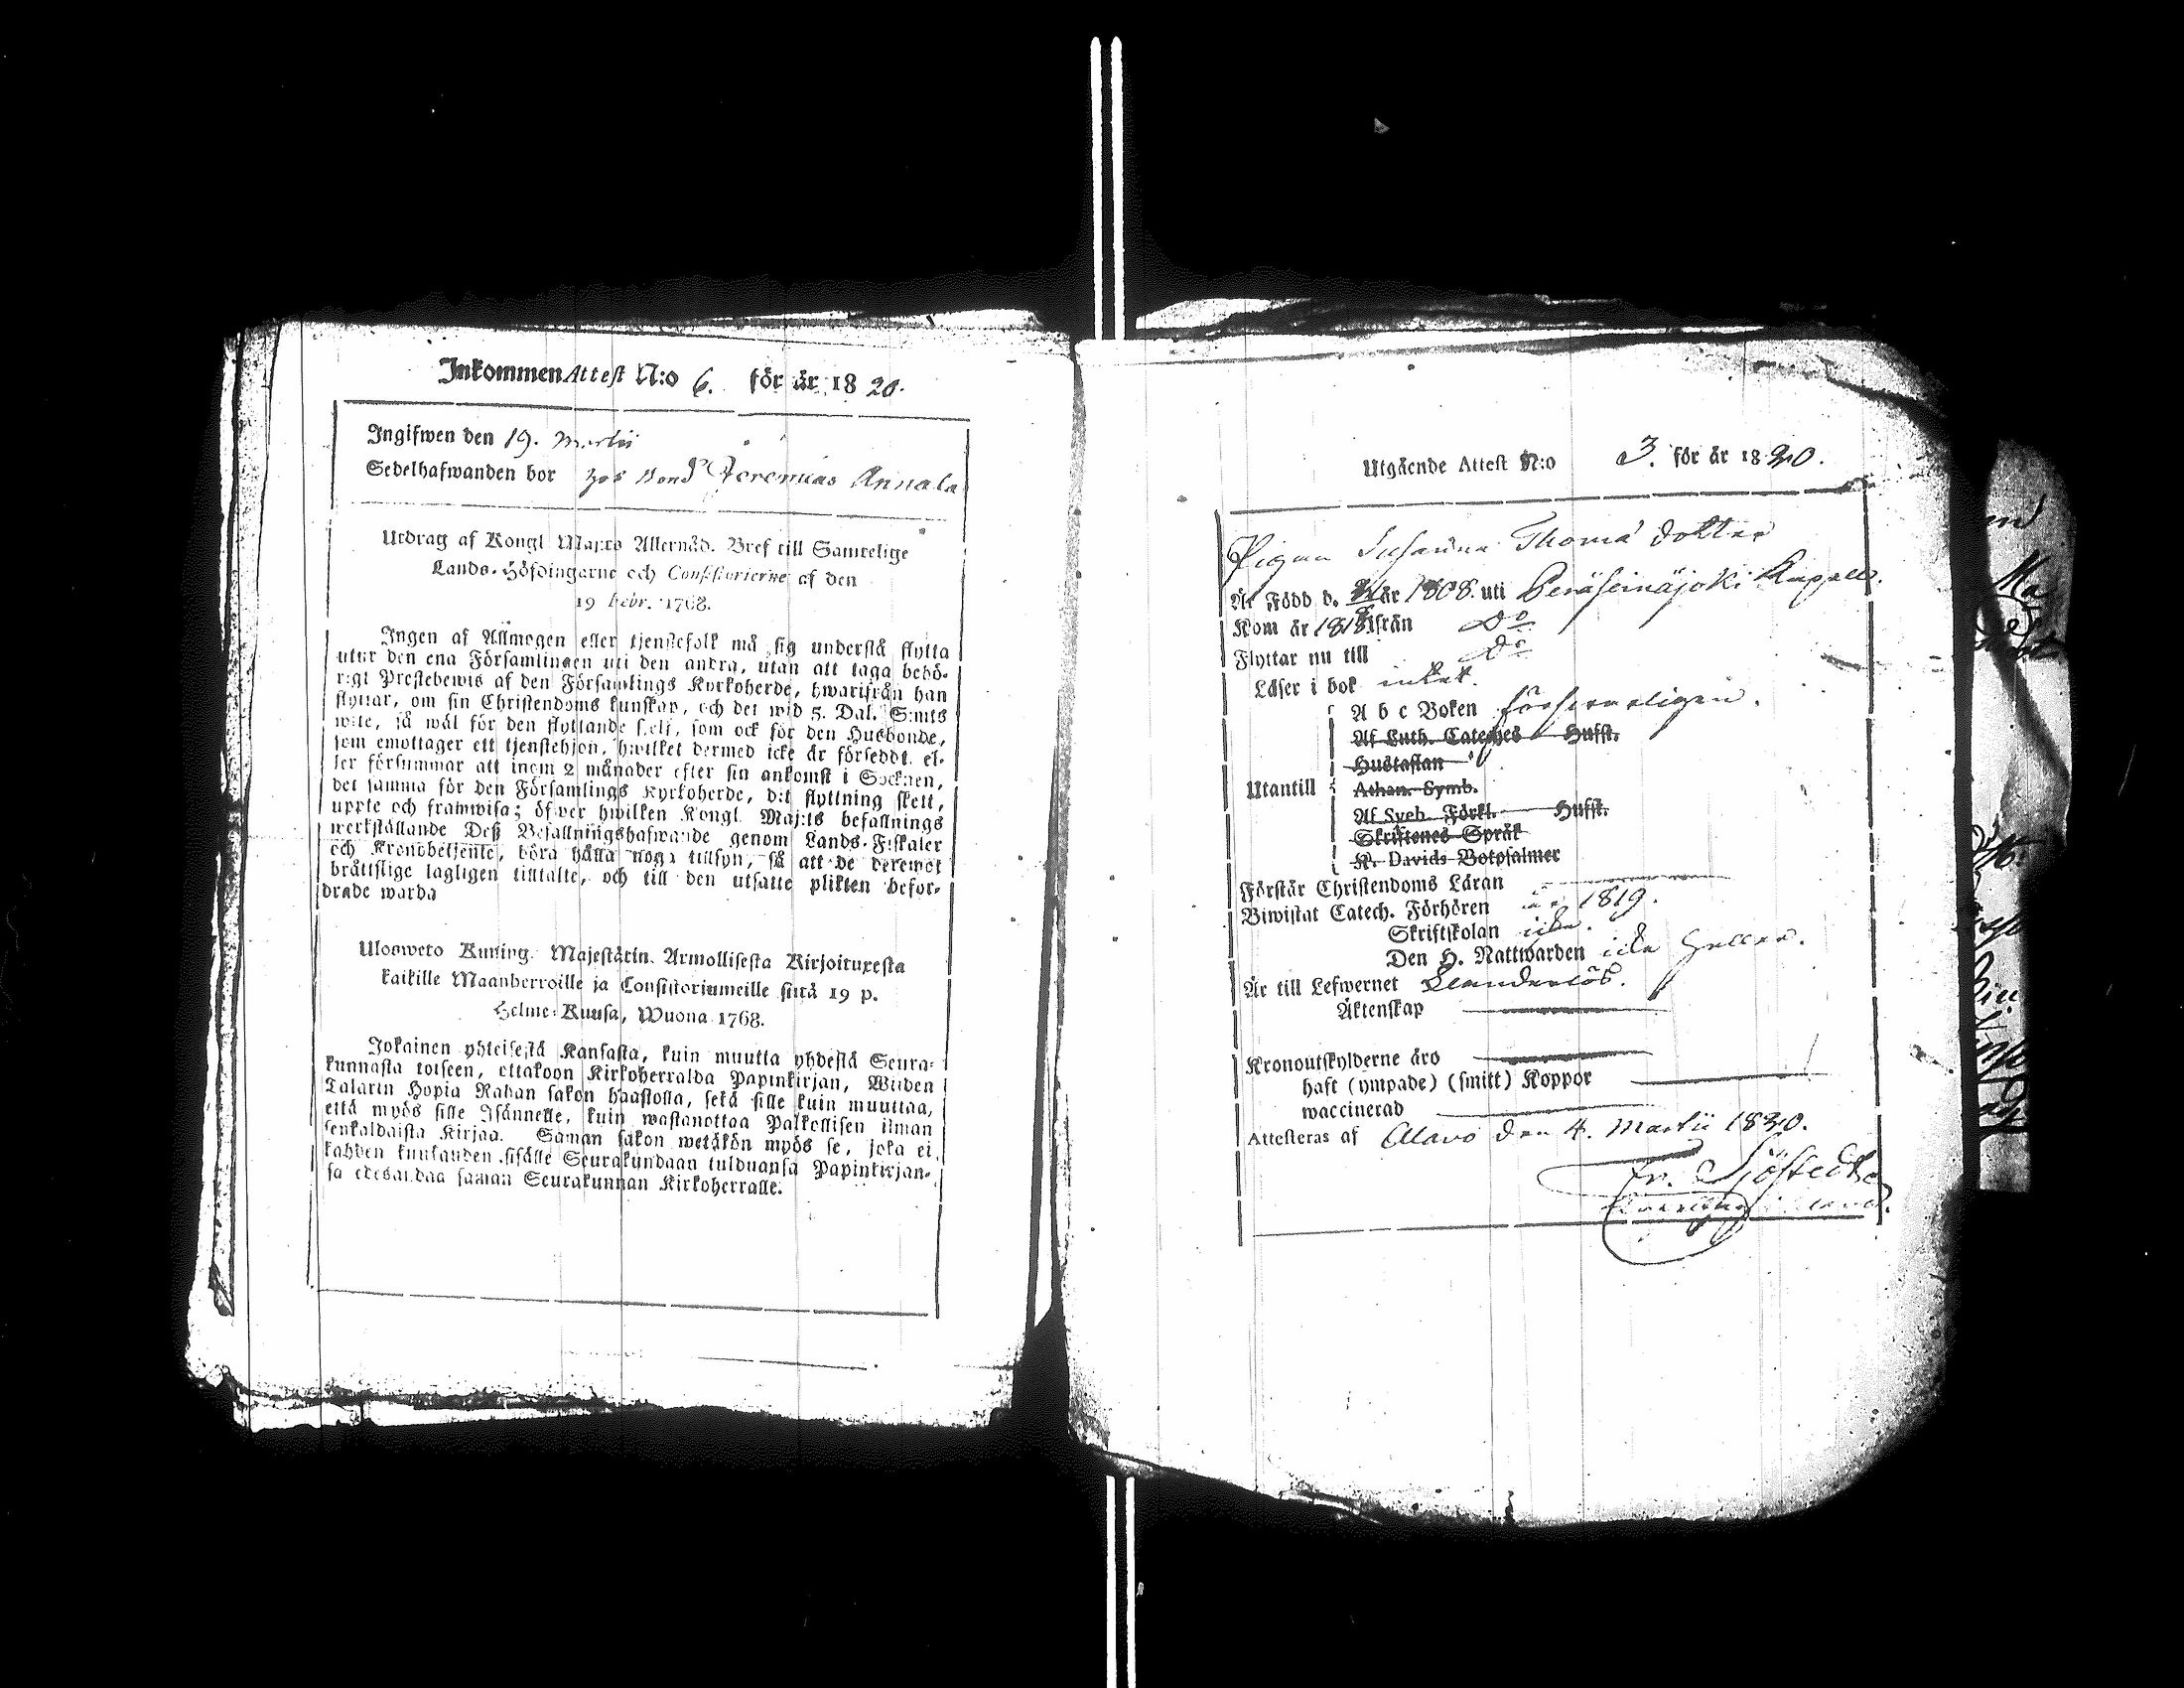 Inkommen Attest N:o 6. för år 1820.
Ingifwen den 19. Martii
Sedelhafwanden bor hos Bond Jeremias Annala
Utdrag af Kongl Maj:ts Allernåd. Bref till Samtelige
Lands-Höfdingarne och Consistorierne af den
19 Febr. 1768.
Ingen af Allmogen eller tjenstefolk må sig understå flytta
utur den ena Församlingen uti den andra, utan att taga behö-
rigt Prestebewis af den Församlings Kyrkoherde, hwarifrån han
flyttar, om sin Christendoms kunskap, och det wid 5. Dal. S:mts
wite, så wäl för den flyttande self, som ock för den Husbonde,
som emottager ett tjenstehjon, hwilket dermed icke är försedt, el-
ler försummar att inom 2 månader efter sin ankomst i Socknen,
det samma för den Församlings Kyrkoherde, dit flyttning skett,
uppte och framwisa; öfwer hwilken Kongl. Maj:ts befallnings
werkställande Deß Befallningshafwande genom Lands-Fiskaler
och Kronobetjente, böra hålla noga tillsyn, så att de deremot
bråttslige lagligen tilltalte, och till den utsatte plikten befor-
drade warda
Uloswero Kuning. Majestätin. Armollisesta Kirjoituxesta
kaikille Maanherroille ja Consistoriumeille siitä 19 p.
Helme-Kuusa, Wuona 1768.
Jokainen yhteisestä Kansasta, kuin muutta yhdestä Seura-
kunnasta toiseen, ottakoon Kirkoherralda Papinkirjan, Wiiden
Talarin Hopia Rahan sakon haastolla, sekä sille kuin muuttaa,
että myös sille Isännelle, kuin wastanottaa Palkollisen ilman
senkaldaista Kirjaa. Saman sakon wetäkön myös se, joka ei
kahden kuukauden sisälle Seurakundaan tulduansa Papinkirjan-
sa edesandaa saman Seurakunnan Kirkoherralle.
Utgående Attest N:o 3. för år 1820.
Pigan Susanna Thomä dotter
Är Född d. år 1808. uti Peräseinäjoki Kapell.
Kom år 1818 ifrån Do
Flyttar nu till Do
Läser i bok intet.
A b c Boken försvarligen.
Af Luth. Cateches Hufst.
Hustaflan
Utantill Athan. Symb.
Af Sveb. Förkl. Hufst.
Skriftenes Språk
K. Davids Botpsalmer
Förstår Christendoms Läran
Biwistat Catech. Förhören år 1819.
Skriftskolan icke.
Den H. Nattwarden icke heller.
Är till Lefwernet Klanderlös.
Äktenskap
Kronoutskylderne äro
haft (ympade) (smitt) Koppor
waccinerad
Attesteras af Alavo den 4. Martii 1820.
Fr. Sjöstedt